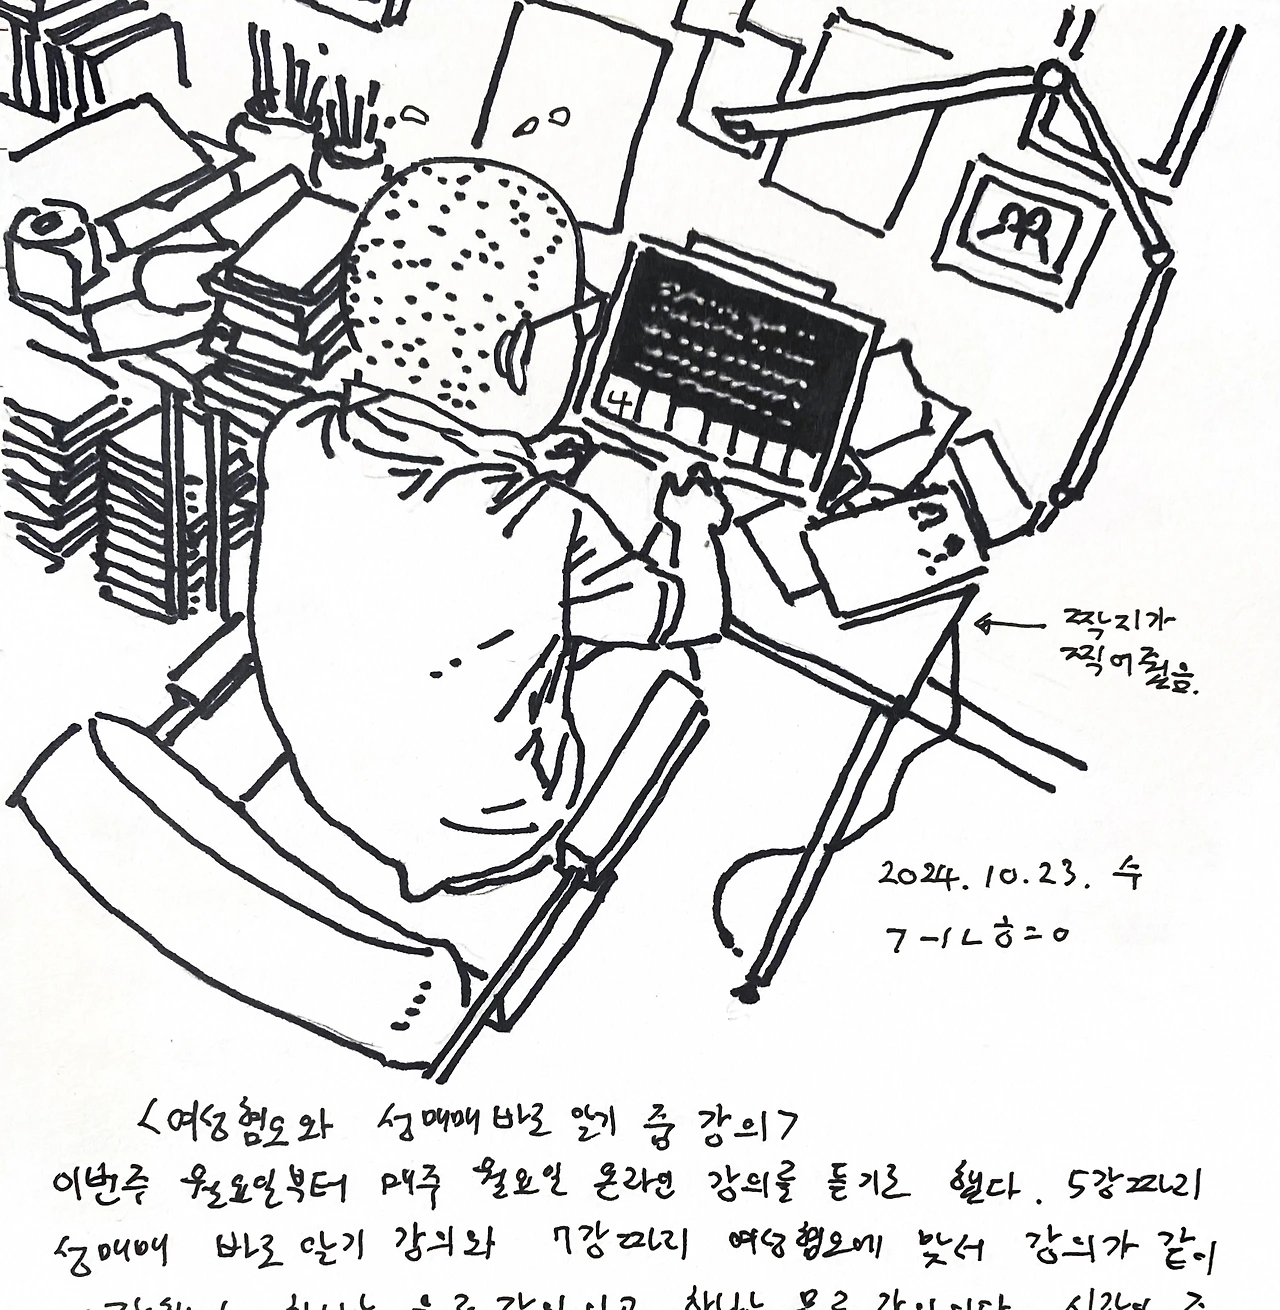 4
짝지가
찍어줬음.
2024. 10. 23. 수
<여성혐오와 성매매 바로 알기 줌 강의>
이번주 월요일부터 매주 월요일 온라인 강의를 듣기로 했다. 5강짜리
성매매 바로 알기 강의와 7강짜리 여성혐오에 맞서 강의가 같이